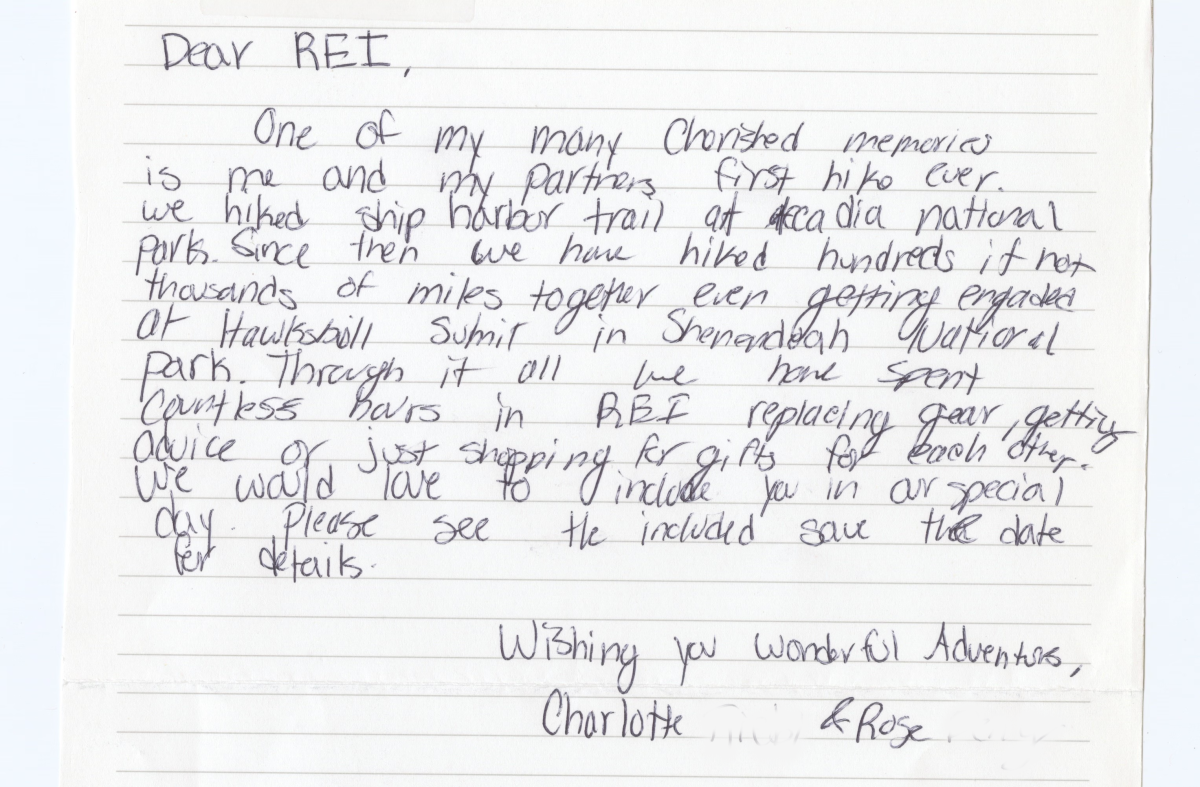 Dear REI,
One of my many Cherished memories
is me and my partners first hike ever.
we hiked ship harbor trail at Acadia national
park. Since then we have hiked hundreds if not
thousands of miles together even getting engaded
at Hawksbill Sumit in Shenendoah National
park. Through it all we have spent
Countless hours in REI replacing gear, getting
advice or just shopping for gifts for each other.
We would love to include you in our special
day. Please see the included save the date
for details.
Wishing you wonderful Adventures,
Charlotte & Rose